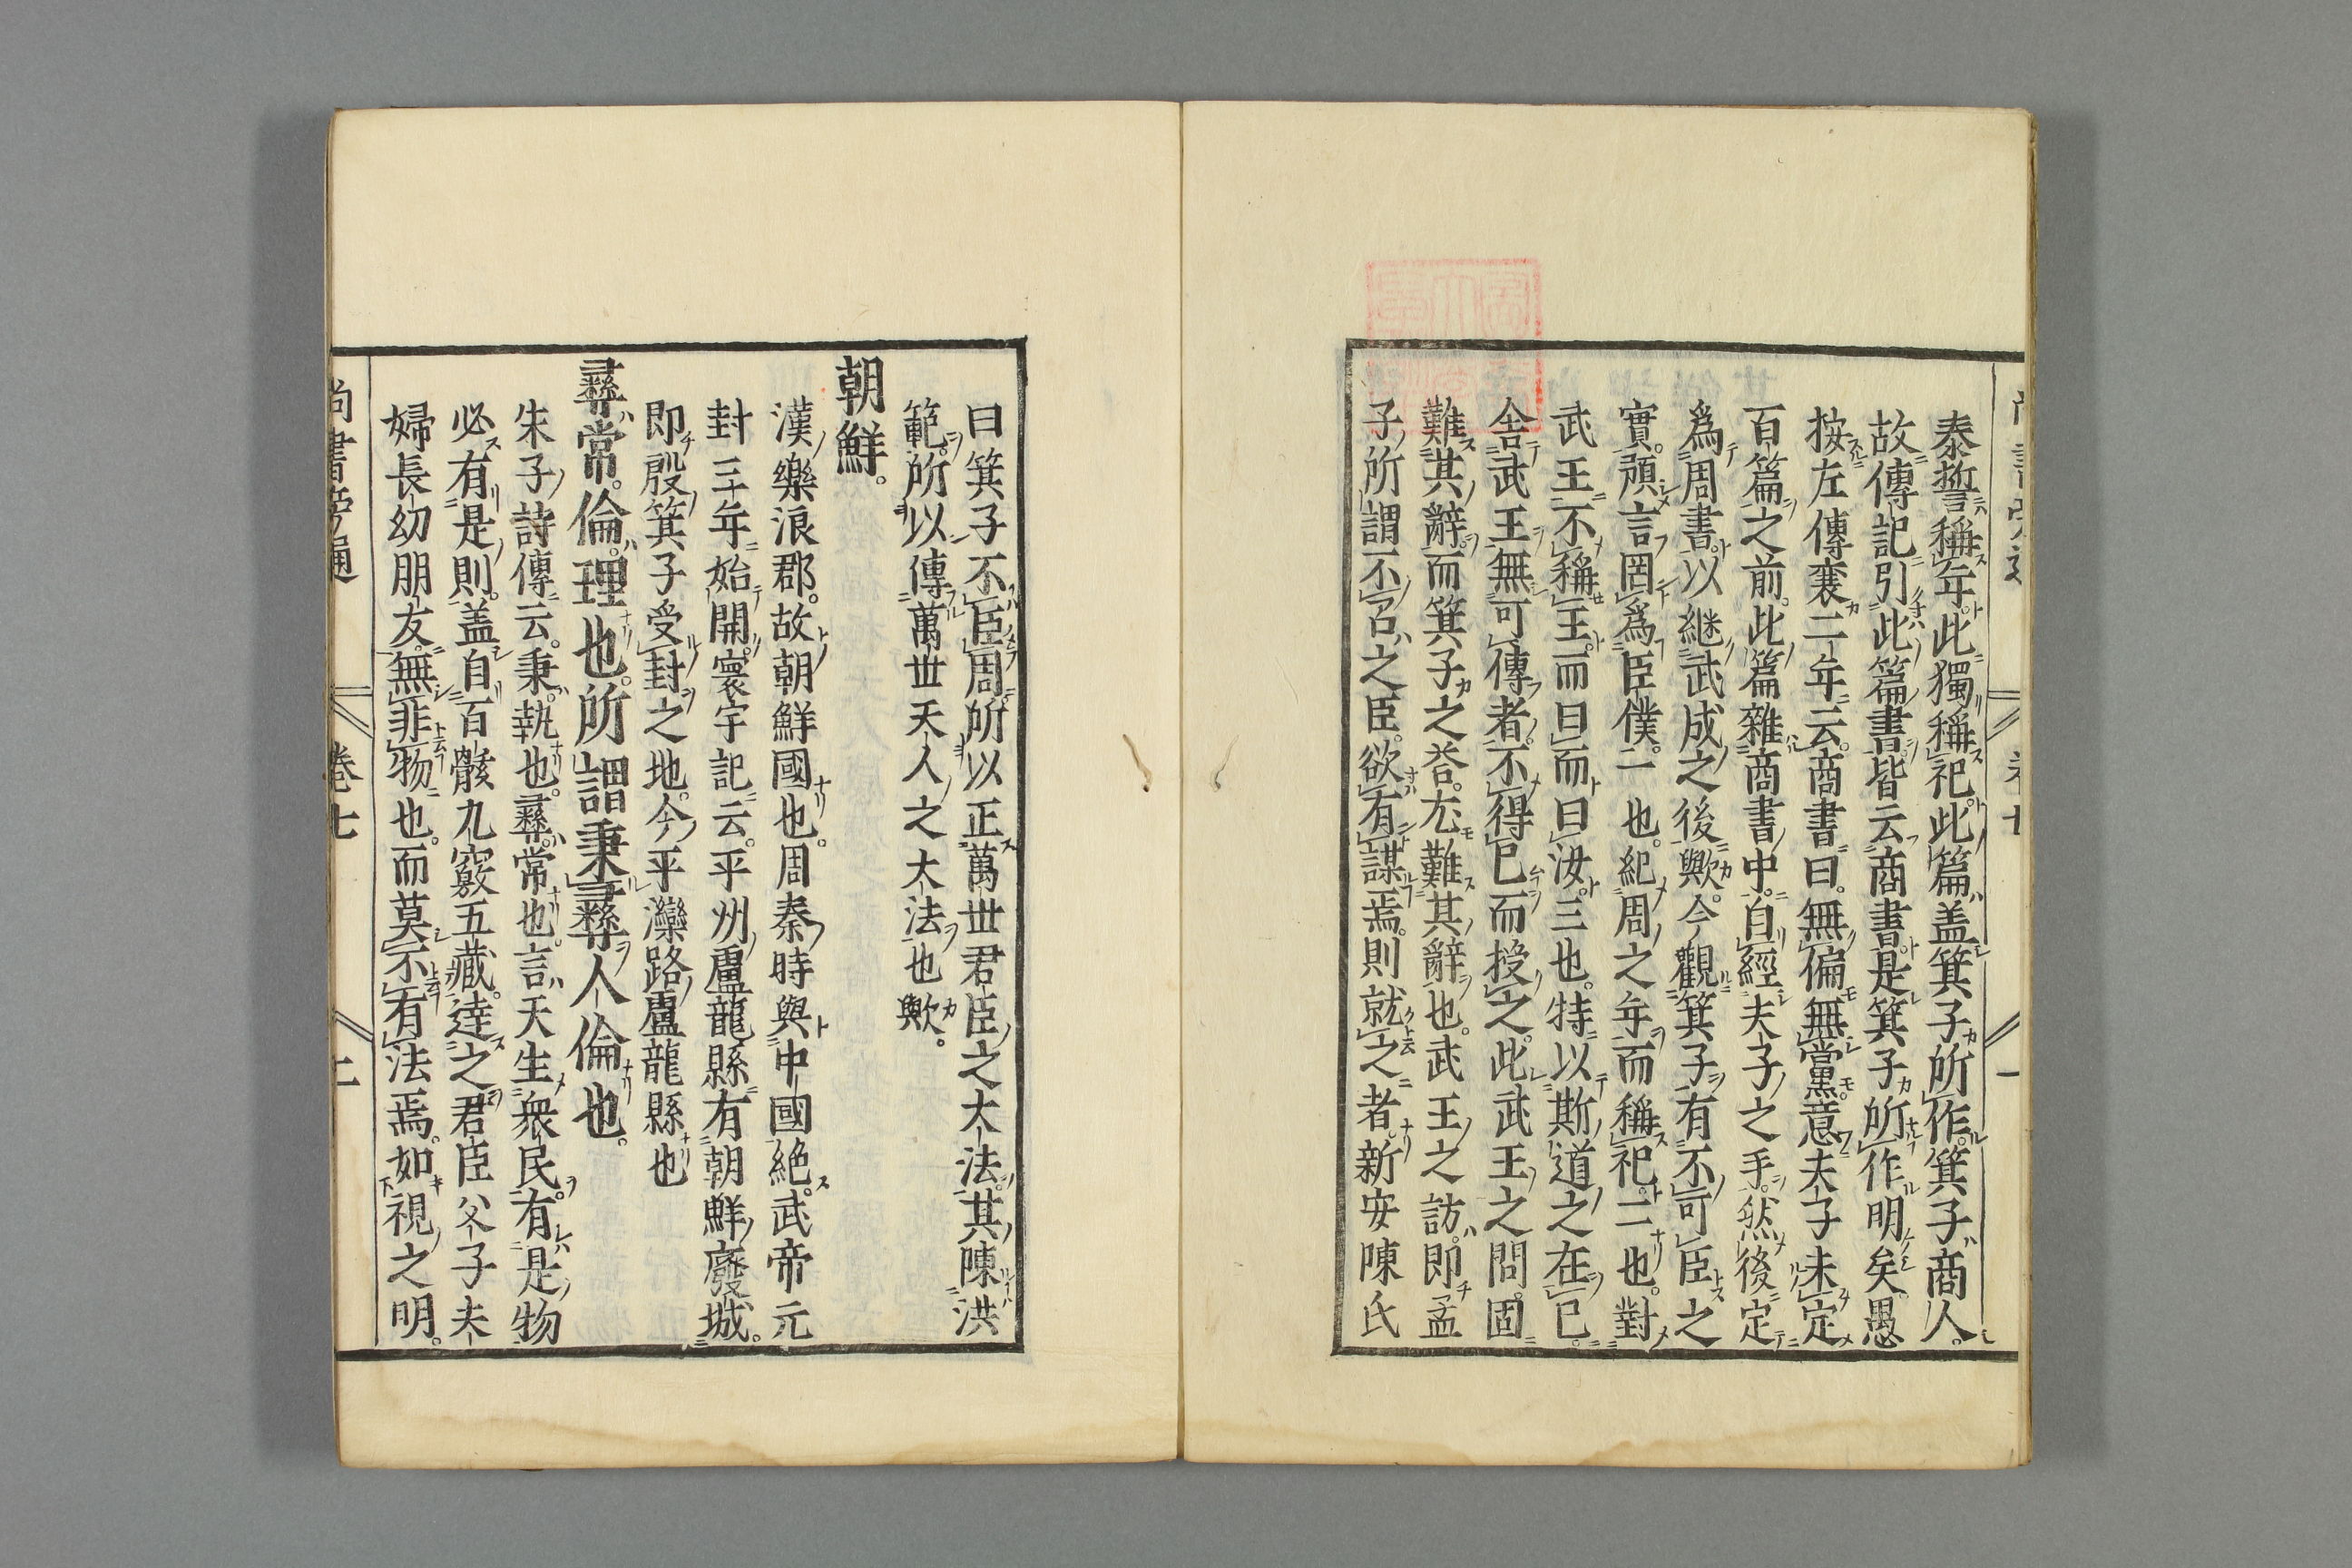 泰誓稱年。此獨稱祀。此篇蓋箕子所作。箕子商人。
故傳記引此篇書。皆云商書。是箕子所作明矣。愚
按左傳襄二年云。商書曰。無偏無黨。意夫子未定
百篇之前。此篇雜商書中。自經夫子之手。然後定
爲周書。以継武成之後歟。今觀箕子有不可臣之
實。頋言罔爲臣僕。一也。紀周之年而稱祀。二也。對
武王不稱王。而曰而曰汝。三也。特以斯道之在已。
舎武王無可傳者。不得已而授之。此武王之問。固
難其辭。而箕子之荅。尤難其辭也。武王之訪。即孟
子所謂不召之臣。欲有謀焉。則就之者。新安陳氏
曰箕子不臣周。所以正萬世君臣之大法。其陳洪
範。所以傳萬世天人之大法也歟。
朝鮮。
漢樂浪郡。故朝鮮國也。周秦時與中國絶。武帝元
封三年始開。寰宇記云。平州盧龍縣有朝鮮廢城。
即殷箕子受封之地。今平灤路盧龍縣也
彞常。倫理也。所謂秉彞人倫也。
朱子詩傳云。秉。執也。彞。常也。言天生衆民。有是物
必有是則。盖自百骸九竅五藏。逹之君臣父子夫
婦長幼朋友。無非物也。而莫不有法焉。如視之明。
尚書旁通
卷七
二